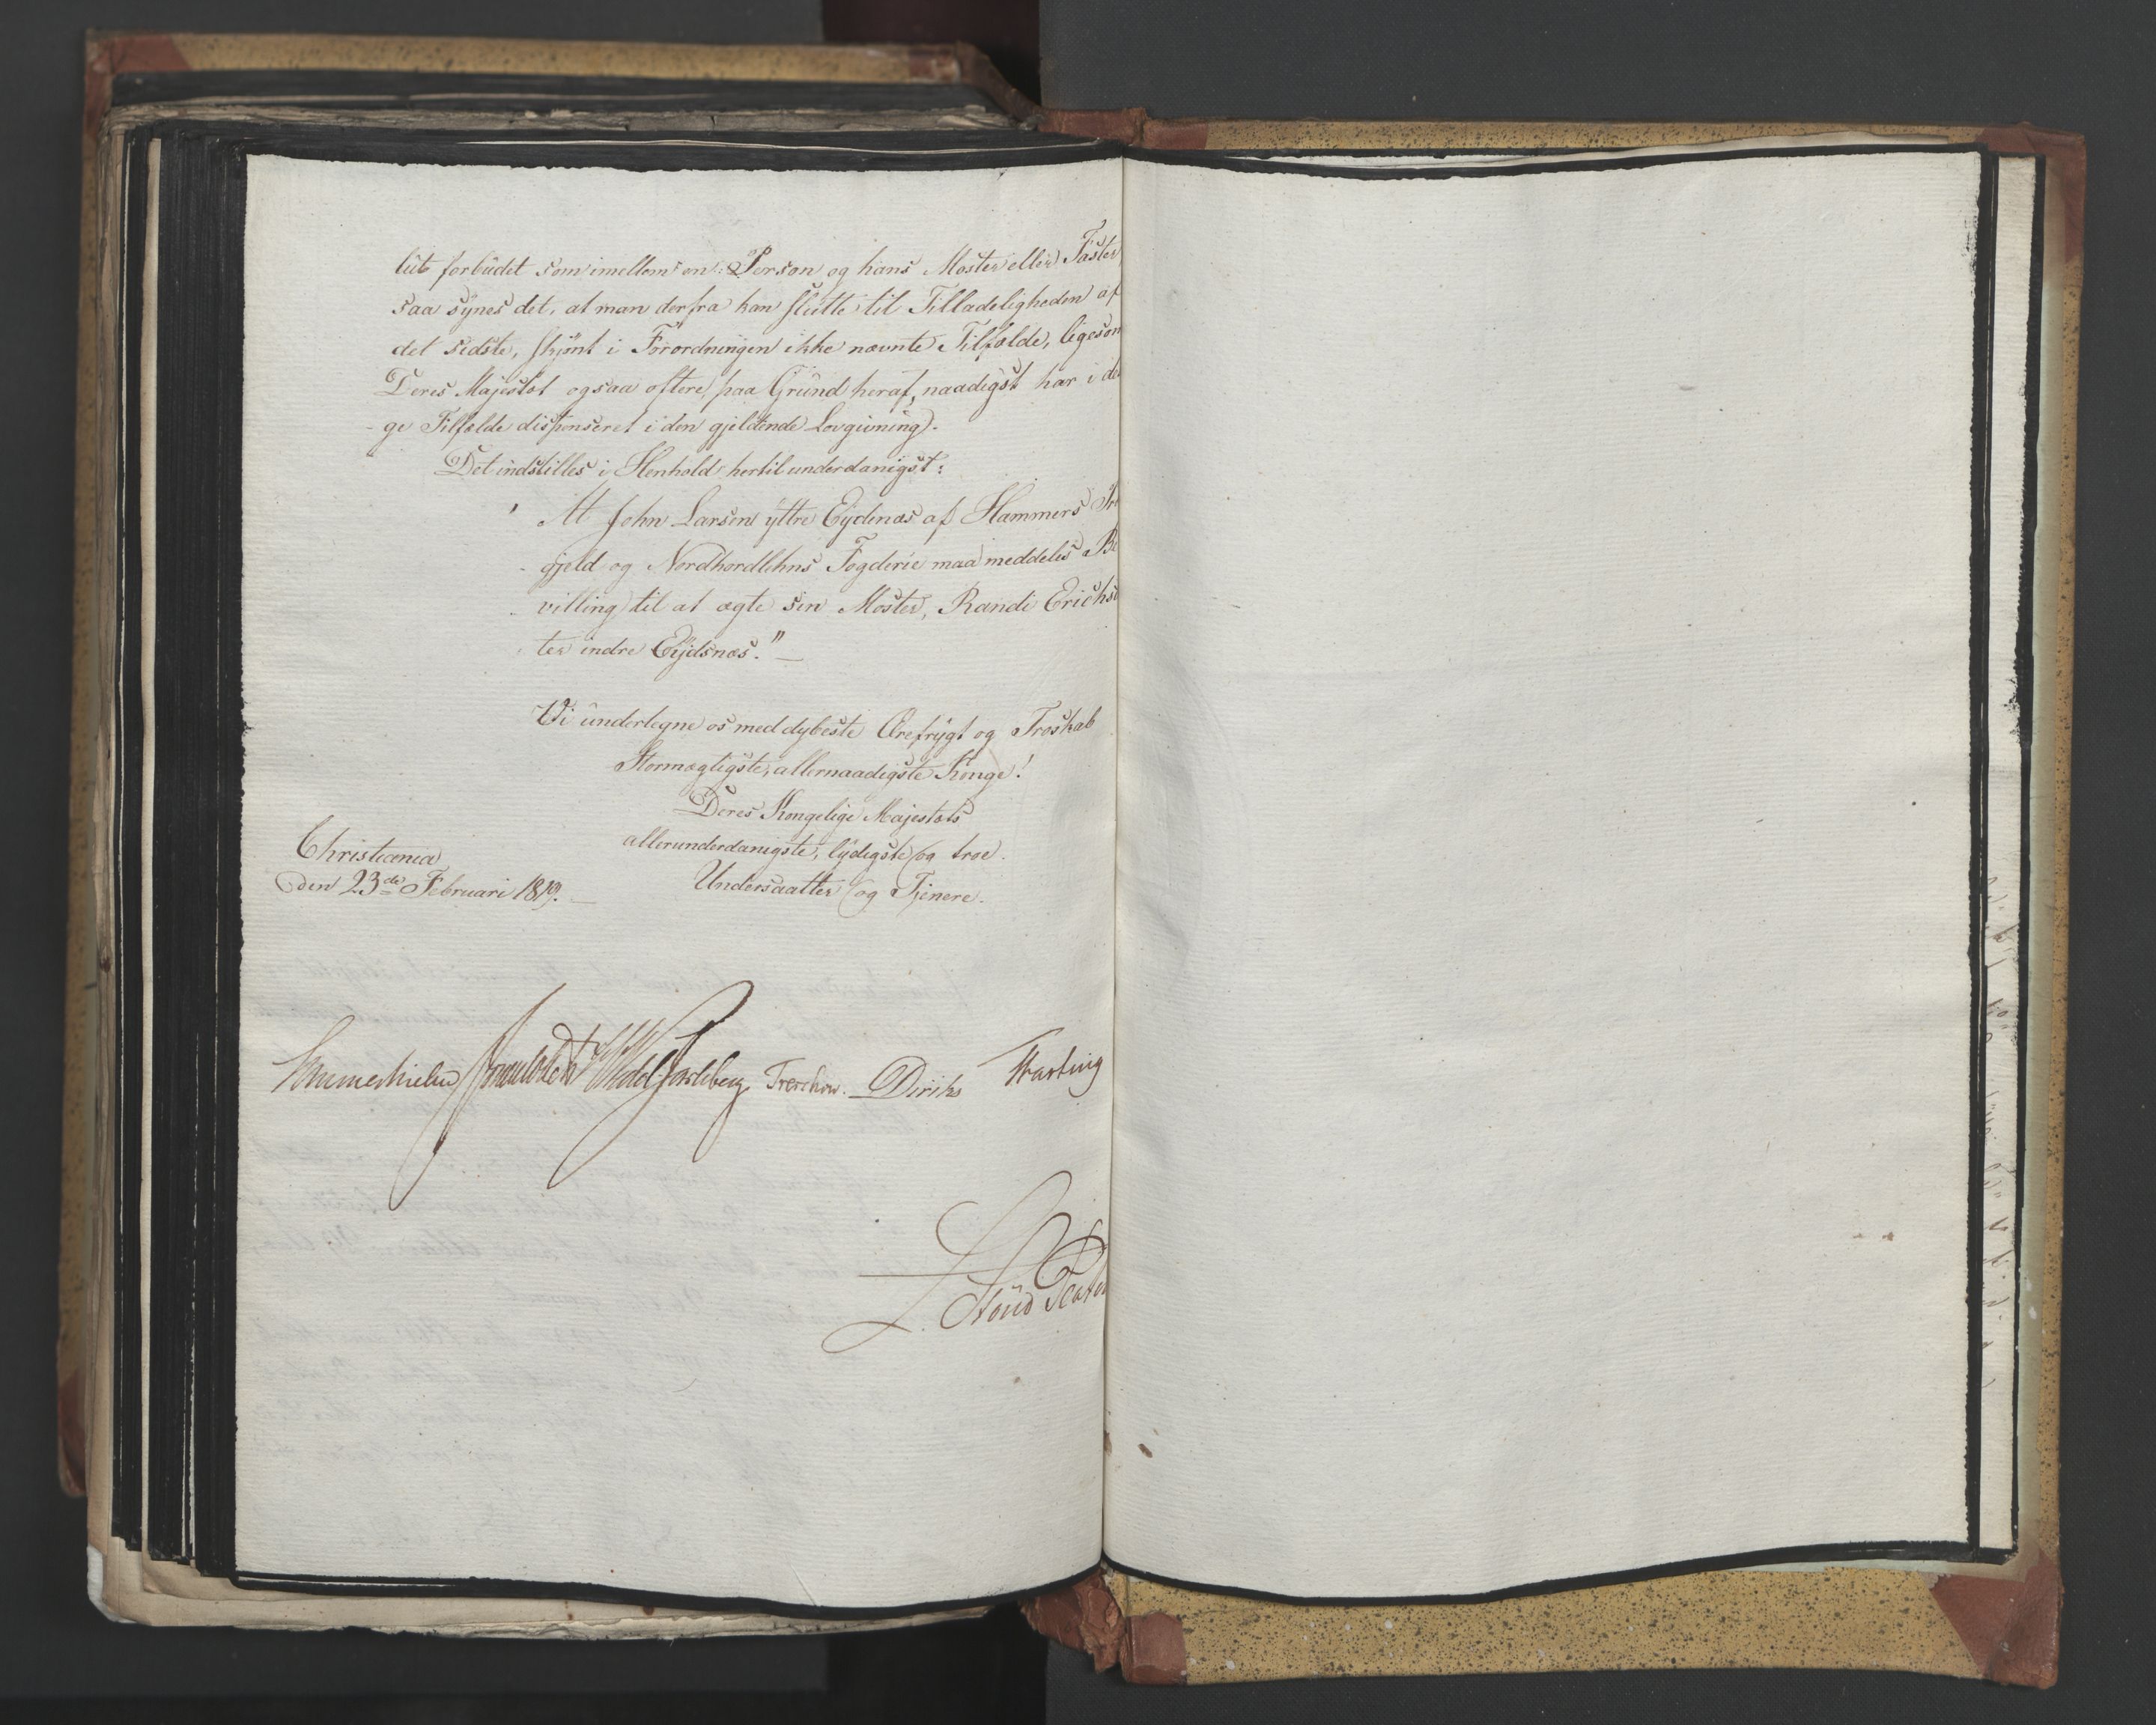 lut forbudet som imellem en Person og hans Moster eller Faster,
saa synes det, at man derfra kan slutte til Tilladeligheden af
det sidste, skjønt i Forordningen ikke nævnte Tilfælde, ligesom
Deres Majestæt ogsaa oftere, paa Grund heraf, naadigst har i de
ge Tilfælde dispenseret i den gjeldende Lovgivning).
Det indstilles i Henhold hertil underdanigst:
"At John Larsen yttre Eydenæs af Hammers Pre
gjeld og Nordhordlehns Fogderie maa meddeles Be
villing til at ægte sin Moster, Randi Erichsd
ter indre Eydsnæs." —
Vi underlegne os med dybeste Ærefrygt og Troskab
Stormægtigste, allernaadigste Konge!
Deres Kongelige Majestæts
allerunderdanigste, lydigste og troe
Undersaatter og Tjenere.
Christiania
den 23de Februari 1819. —
Sommerhielm Wedel Jarlsberg Treschow. Diriks Hasting